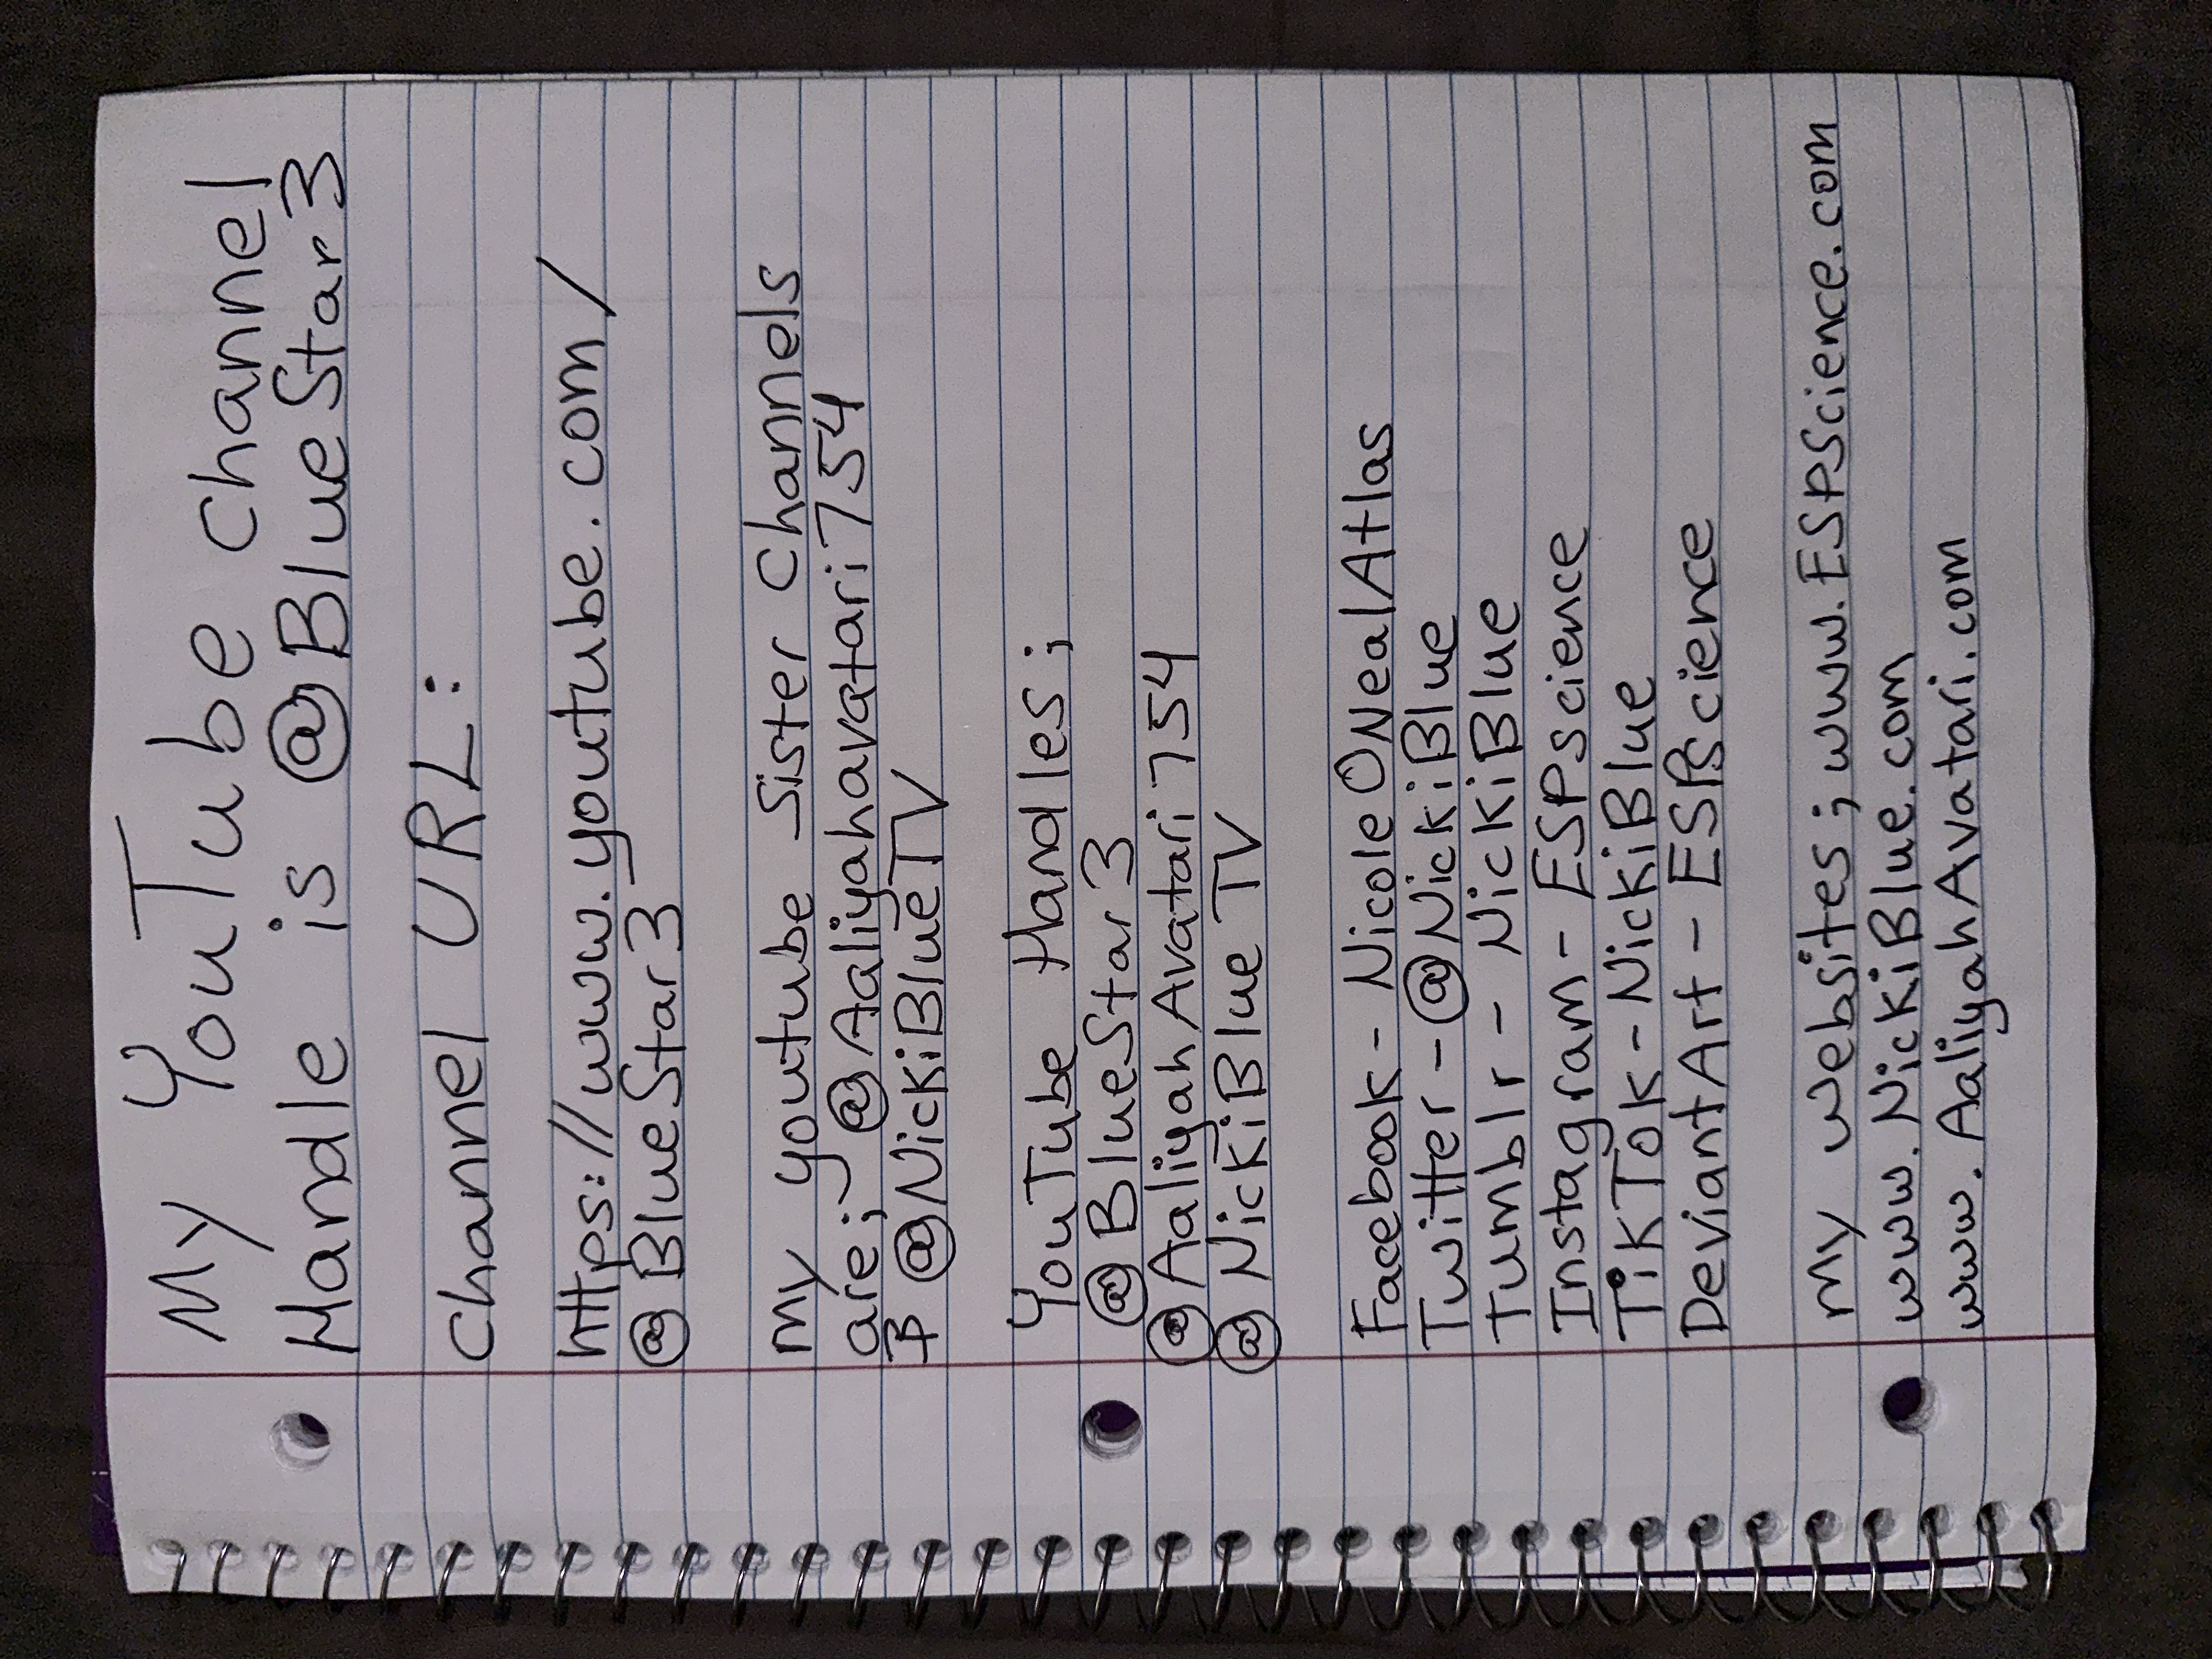 My YouTube channel
Handle is @BlueStar3
Channel URL:
https://www.youtube.com/
@BlueStar3
my youtube Sister Channels
are; @Aaliyahavatari754
& @NickiBlueTV
YouTube Handles;
@BlueStar3
@AaliyahAvatari754
@NickiBlue TV
Facebook - Nicole ONealAtlas
Twitter - @NickiBlue
Tumblr - NickiBlue
Instagram - ESPscience
TikTok - NickiBlue
DeviantArt - ESPScience
my websites; www.ESPScience.com
www.NickiBlue.com
www.AaliyahAvatari.com